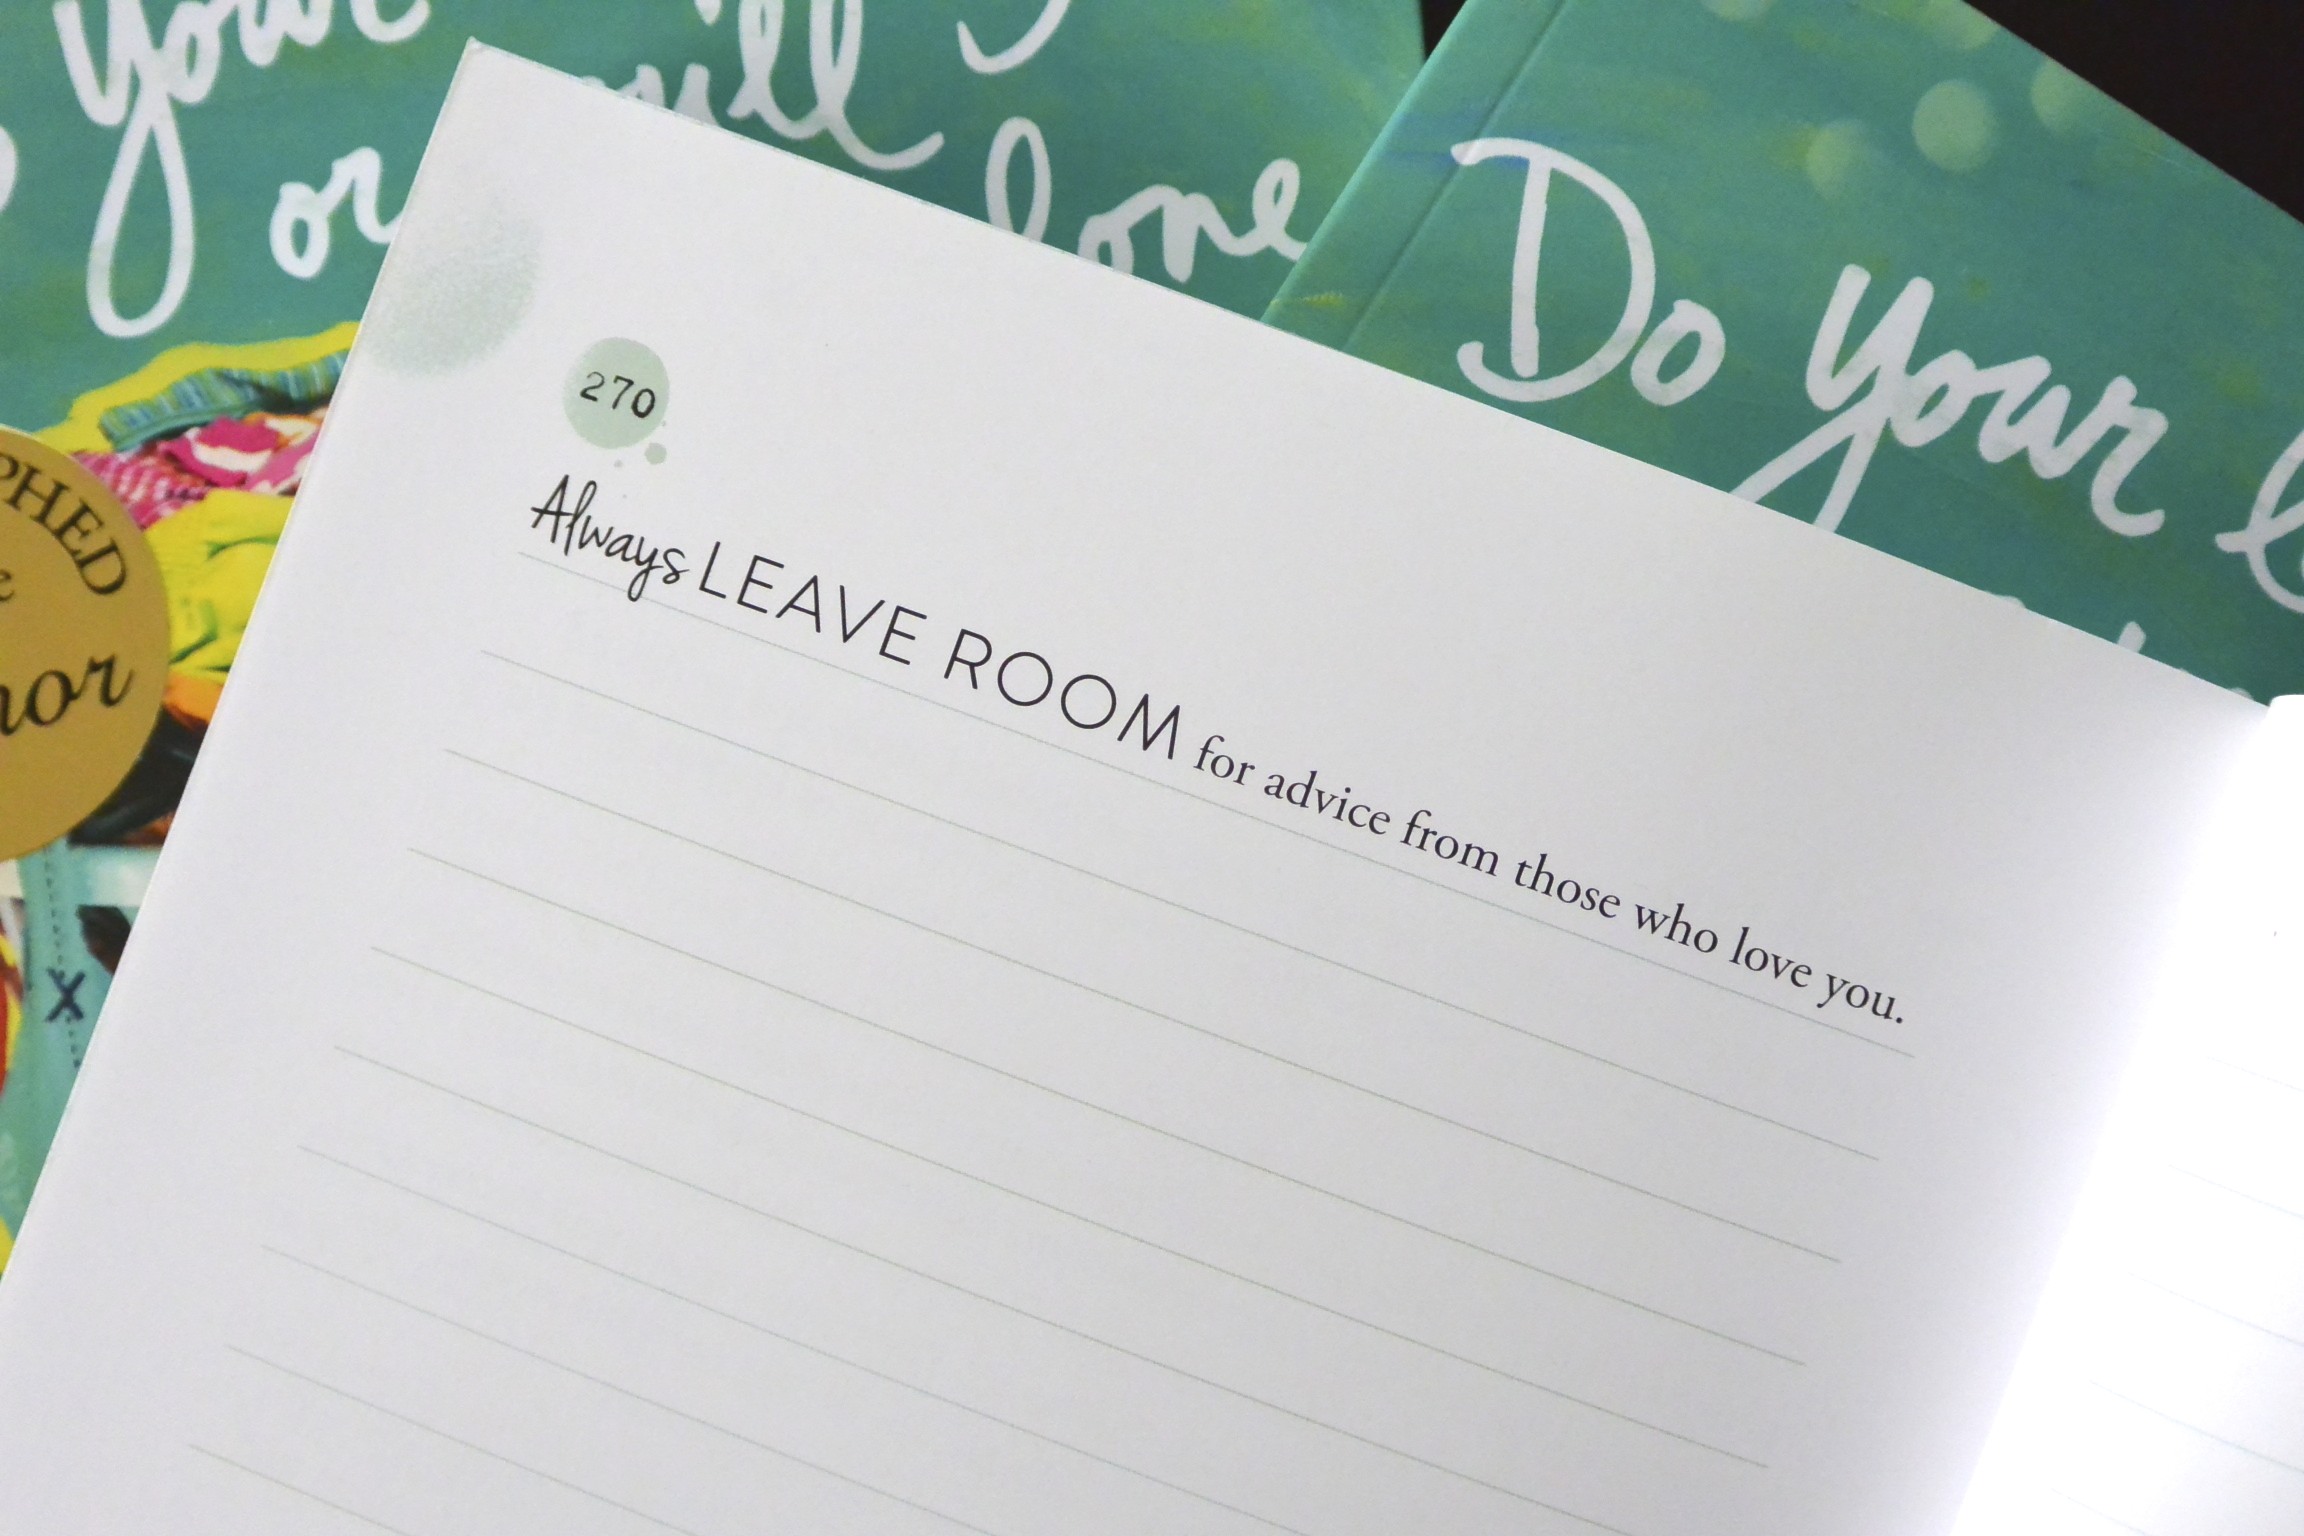 your
will
or
lone
Do your
270
Always LEAVE ROOM for advice from those who love you.
X